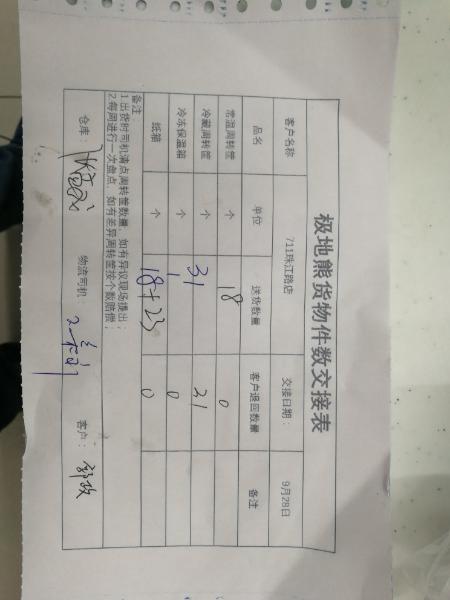 极地熊货物件数交接表
客户名称 711珠江路店 交接日期: 9月28日
品名 单位 送货数量 客户退回数量 备注
常温周转筐 个 18 0
冷藏周转筐 个 31 21
冷冻保温箱 个 1 0
纸箱 个 18+23 0
备注:
1.出货时司机清点周转筐数量,如有异议现场提出;
2.每周进行一次盘点,如有差异周转筐按个数赔偿;
仓库: 物流司机: 客户: 邹政